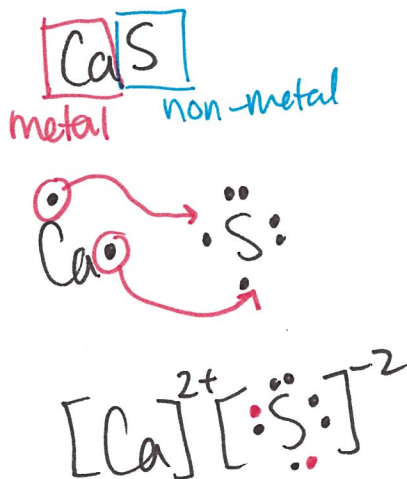 CaS
metal non-metal
Ca S
[Ca]²⁺ [S]⁻²